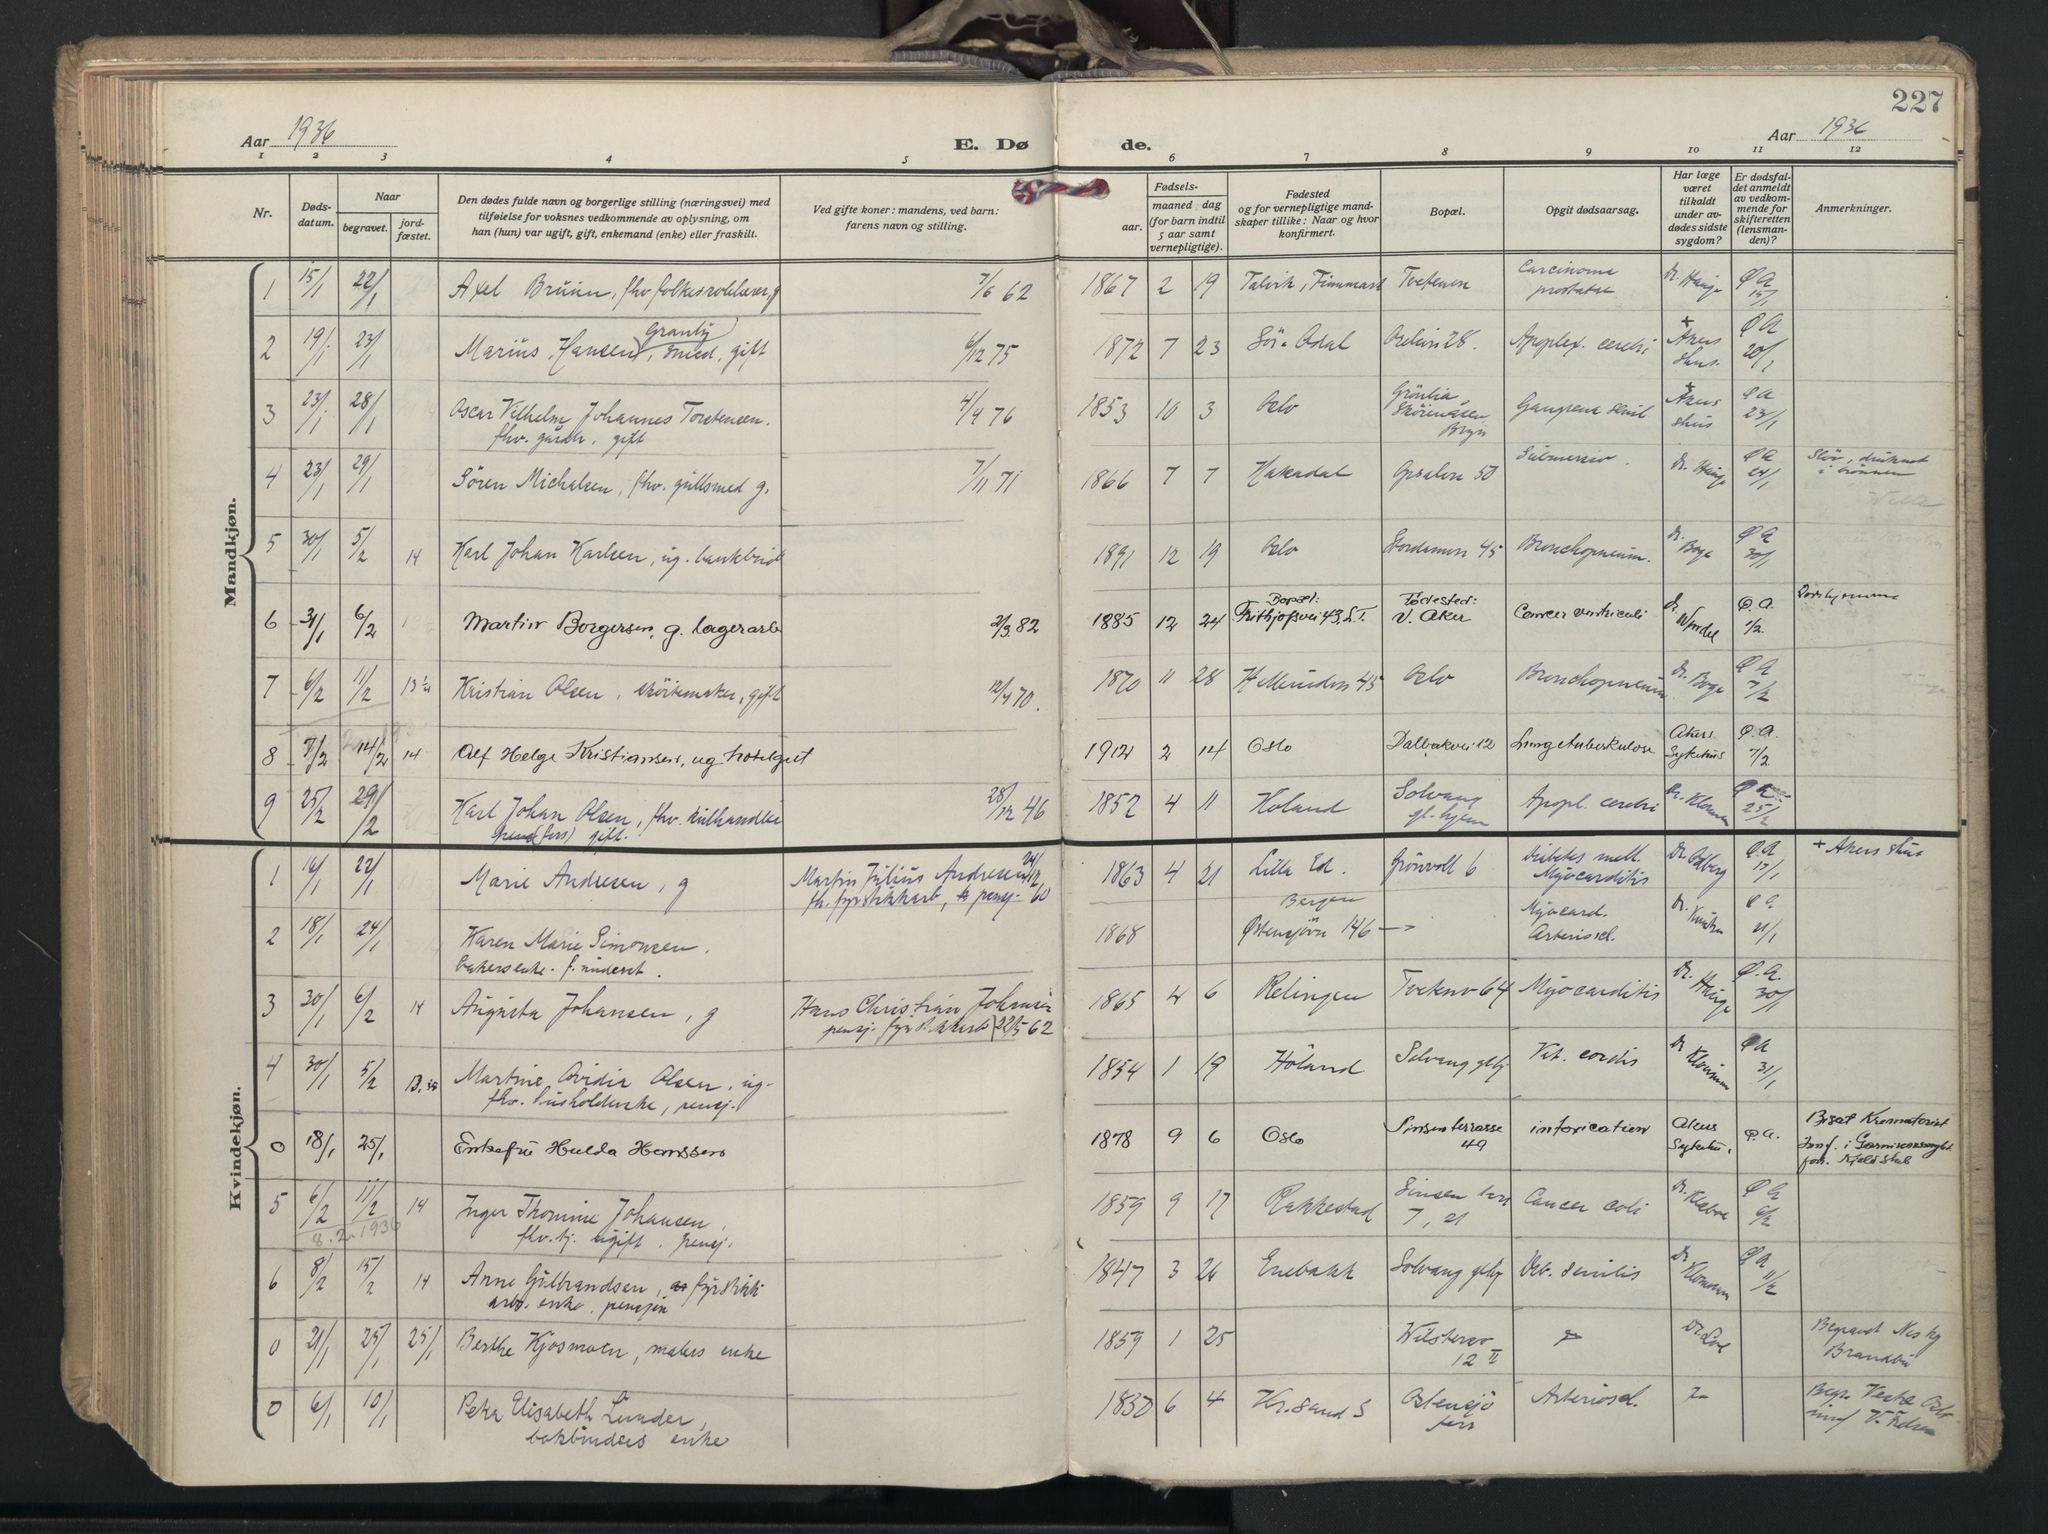 227
Aar 1936 E. Dø de. Aar 1936
1 2 3 4 5 6 7 8 9 10 11 12
Nr. Døds-datum. Naar begravet. jord-fæstet. Den dødes fulde navn og borgerlige stilling (næringsvei) med tilføielse for voksnes vedkommende av oplysning, om han (hun) var ugift, gift, enkemand (enke) eller fraskilt. Ved gifte koner: mandens, ved barn: farens navn og stilling. Fødsels- aar. maaned dag (for barn indtil 5 aar samt vernepligtige). Fødested og for vernepligtige mand-skaper tillike: Naar og hvor konfirmert. Bopæl. Opgit dødsaarsag. Har læge været tilkaldt under av-dødes sidste sygdom? Er dødsfal-det anmeldt av vedkom-mende for skifteretten (lensman-den)? Anmerkninger.
Mandkjøn.
1 15/1 22/1 Axel Bruun, fhv. folkeskolelærer, g 7/6 62 1867 2 19 Talvik, Finnmark Tvetenvn Carcinoma prostatae Dr. Hauge Ø A 15/1
2 19/1 23/1 Marius Hansen Granby, smed, gift 6/12 75 1872 7 23 Sör-Odal 28. Apoplex. cerebri + Akers hus. Ø A 20/1
3 23/1 28/1 Oscar Vilhelm Johannes Torstensen.
fhv. gårdb. gift 4/4 76 1853 10 3 Oslo Grönlia, Skörenåsen Bryn Gangrena senil + Akers hus Ø A 23/1
4 23/1 29/1 Sören Michalsen, fhv. gullsmed g. 7/11 71 1866 7 7 Hakadal Opsalvn 50 Submersio. Dr. Hauge Ø A 24/1 Sløv, druknet i brönnen
5 30/1 5/2 14 Karl Johan Karlsen, ug. 1891 12 19 Oslo 45 Bronchopneum. Dr. Boye Ø A 30/1
6 31/1 6/2 Martin Borgersen, g. lagerarb 2/3 82 1885 12 24 Bopæl: Frithjofsvei 43, L.T. Fødested: V. Aker Cancer ventriculi Dr. Ø. A. 1/2.
7 6/2 11/2 13 1/2 Kristian Olsen, skōitemaker, gift 12/4 70. 1870 11 28 45 Oslo Bronchopneum Dr. Boye Ø A 7/2
8 7/2 14/2 14 Alf Helge Kristiansen, ug hotelgut 1912 2 14 Oslo Dalbakvei 12 Lungetuberkulose Akers Sykehus Ø. A. 7/2
9 25/2 29/2 Karl Johan Olsen, fhv. kulhandler
pens (fors) gift. 28/12 46 1852 4 11 Höland Solvang gl.hjem Apopl. cerebri Dr. Klonum Ø A 25/2
Kvindekjøn.
1 14/1 22/1 Marie Andresen, g Martin Julius Andresen 24/12 60
fh. fyrstikkarb, pensj. 1863 4 21 Lilla Ed. Grönvoll 6 Diabetes mell. Myocarditis Dr. Ødberg Ø. A 17/1 + Akers hus
2 18/1 24/1 Karen Marie Simonsen.
bakersenke. f. underst. 1868 Bergen Østensjövn 146 Myocard. Arterioscl. Dr. Ø A 21/1
3 30/1 6/2 14 Augusta Johansen, g Hans Christian Johansen
pensj. fyrstikkarb) 22/5 62 1865 4 6 Relingen Tvetenv 64 Myocarditis Dr. Hauge Ø. A. 30/1
4 30/1 5/2 Martine Ovidia Olsen, ug.
fhv. husholderske, pensj. 1854 1 19 Höland Solvang glhj Vit. cordis Dr. Klonum Ø A 31/1
0 18/1 25/1 Enkefru Hulda Hanssen 1878 9 6 Oslo Sinsenterrasse 49 intoxication Akers Sykehus. Ø. A. Bisat Krematoriet
5 6/2 11/2 14 Inger Thomine Johansen,
fhv. tj. ugift. pensj. 1859 9 17 Rakkestad Sinsen terr 7, 21 Cancer coli Dr. Ø A 6/2
8.2.1936
6 8/2 15/2 14 Anne Gulbrandsen, fyrstikk
arb. enke, pensjon 1847 3 26 Enebakk Solvang glhj Deb. senilis Dr. Klonum Ø A 11/2
0 21/1 25/1 25/1 Berthe Kjosmoen, malers enke 1859 1 25 12 II Dr. Begravet Nes kg Brandbu
0 6/1 10/1 Petra Elisabeth Lunder,
bokbinders enke 1830 6 4 Kr.sand S Østensjö Arterioscl. Ja Begr. Vestre Oslo